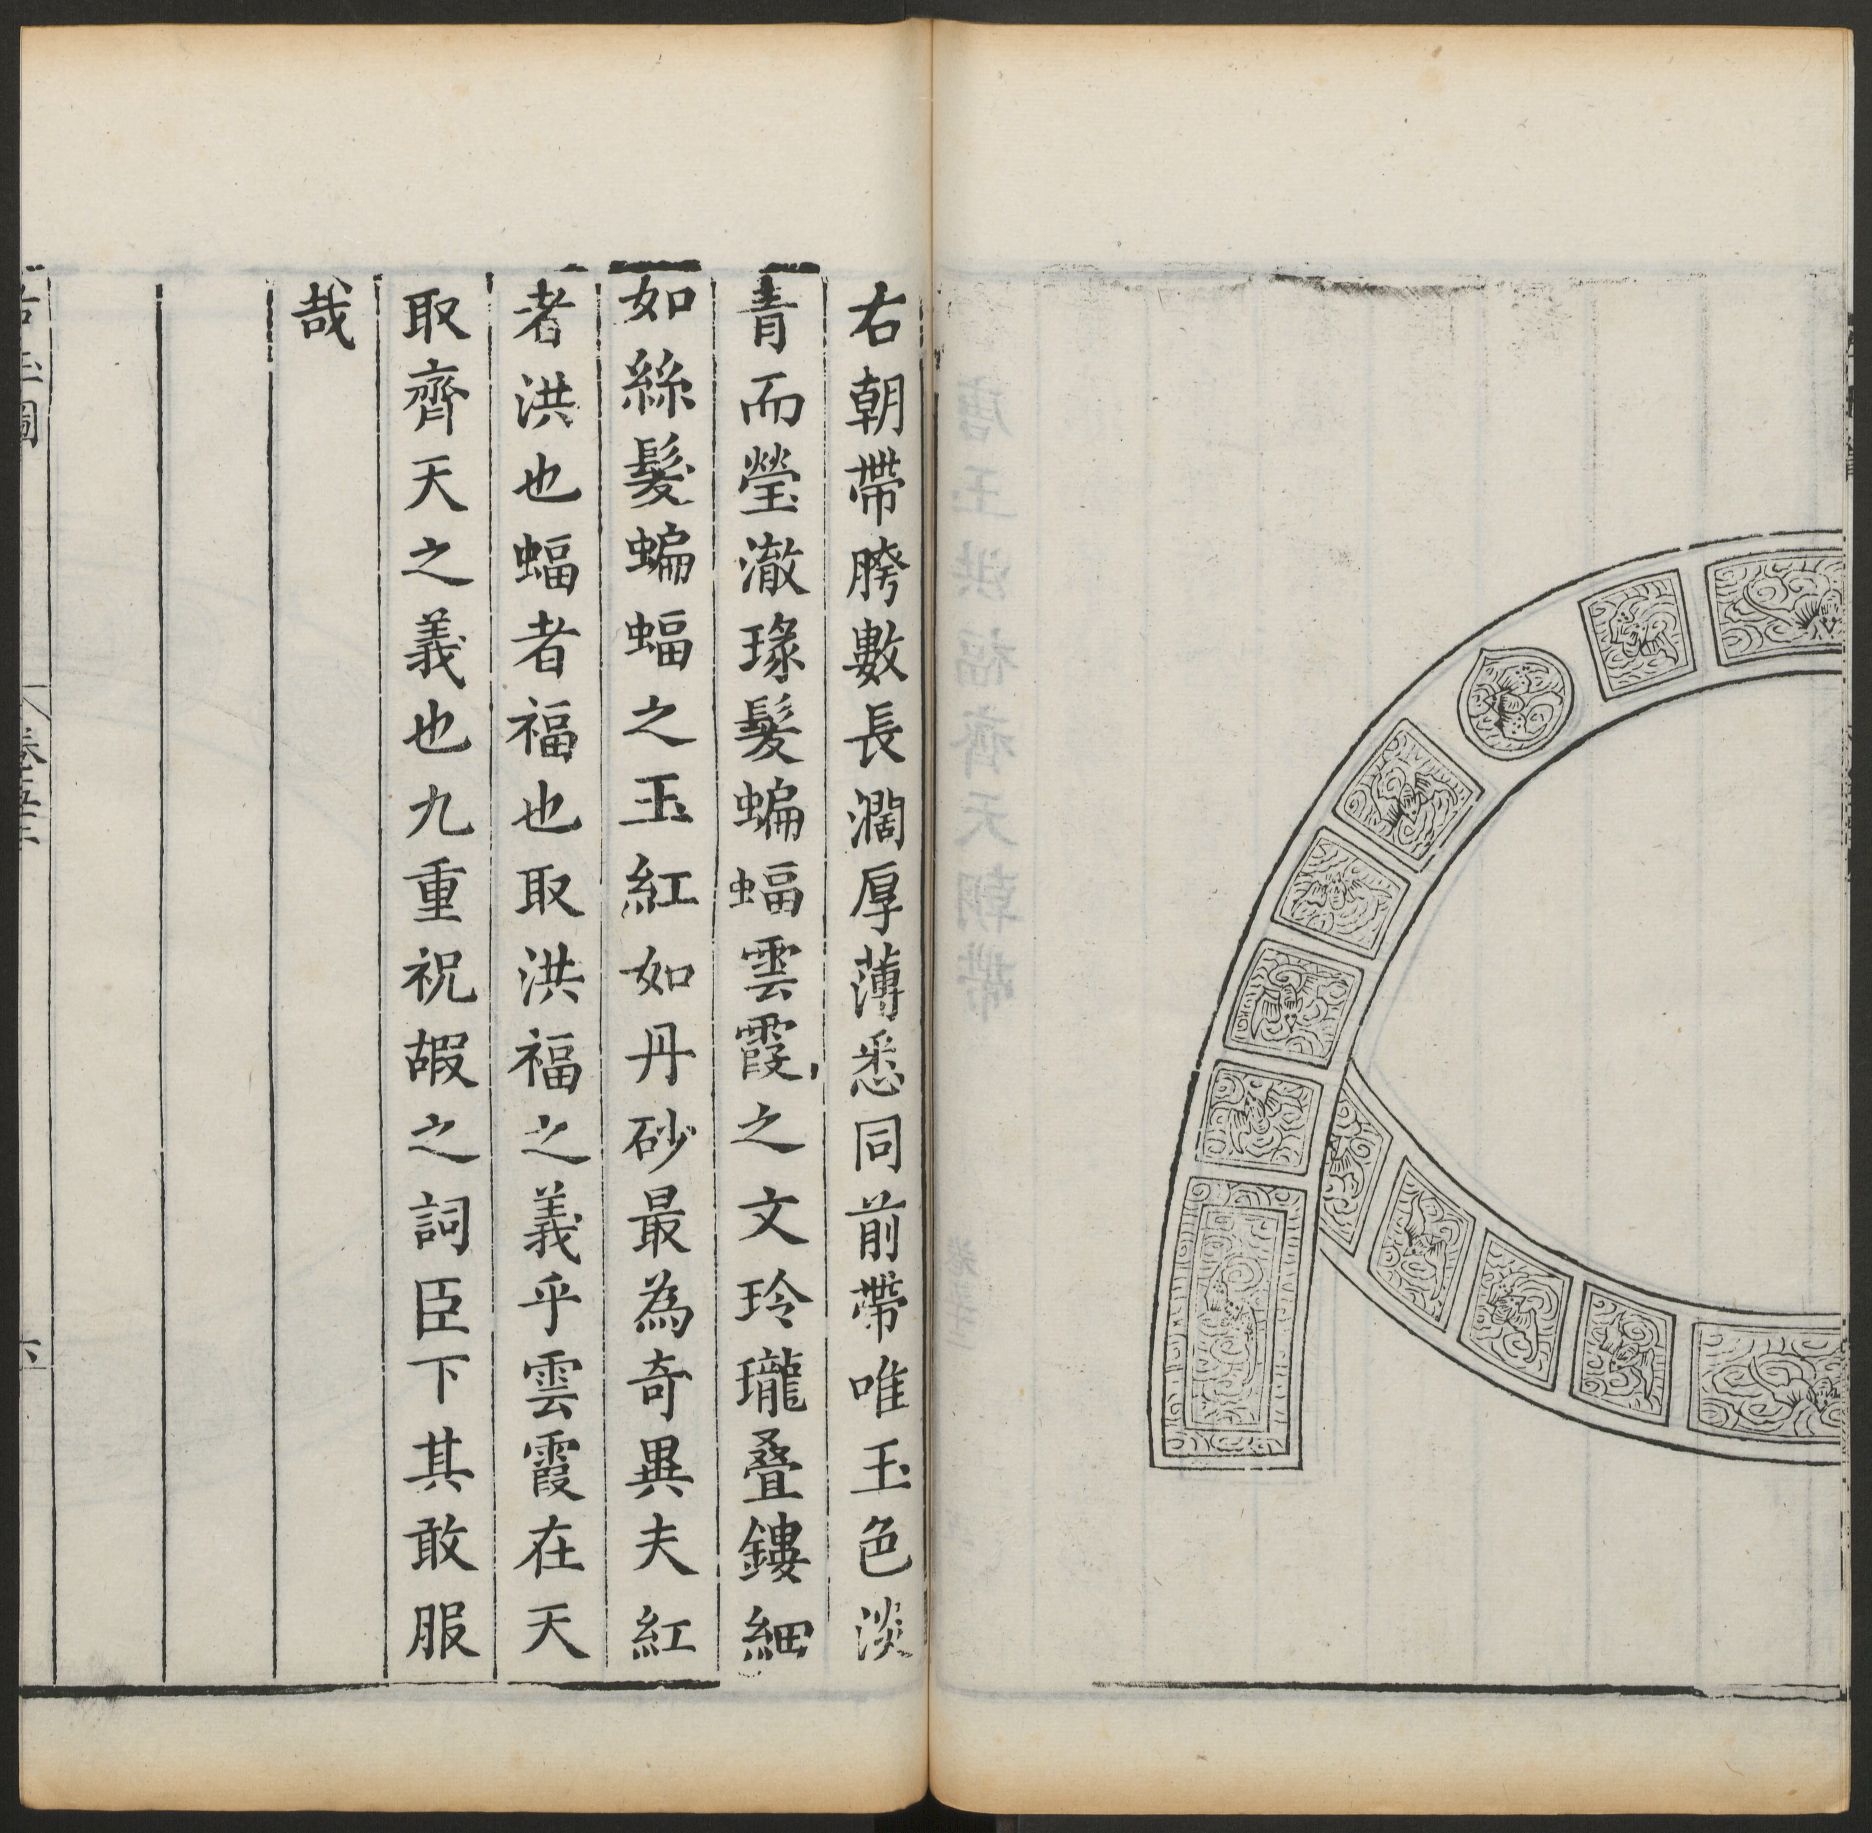 右朝帶胯數長濶厚薄悉同前帶唯玉色淡
青而瑩澈瑑髮蝙蝠雲霞之文玲瓏叠鏤細
如絲髮蝙蝠之玉紅如丹砂最為奇異夫紅
者洪也蝠者福也取洪福之義乎雲霞在天
取齊天之義也九重祝嘏之詞臣下其敢服
哉